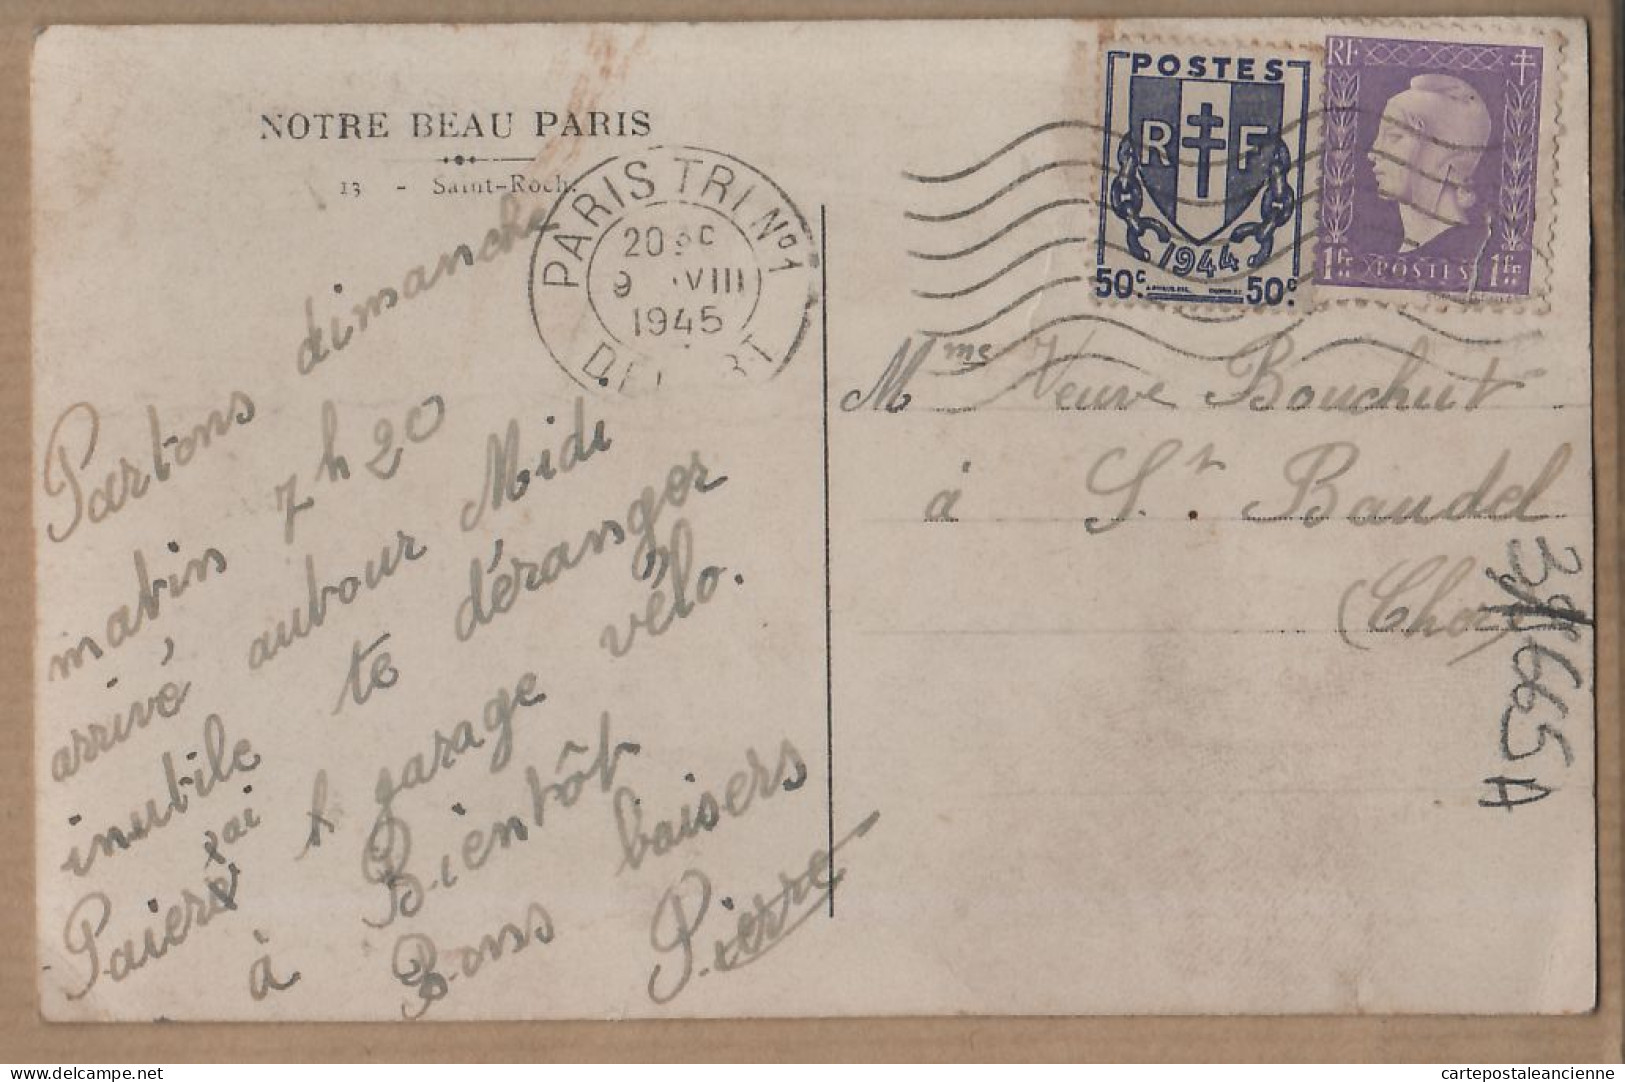 NOTRE BEAU PARIS
13 - Saint-Roch.
PARIS TRI No 1
20
9 VIII
1945
POSTES
RF
1944
50c 50c
RF
1Fr POSTES 1Fr
Partons dimanche
matin 7h20
arrivé autour Midi
inutile te déranger
Paierai
garage vélo.
à Bientôt
Bons baisers
Pierre
Mme Veuve Bouchut
à St. Baudel
(Cher)
665A
cartepostaleancienne
delcampe.net